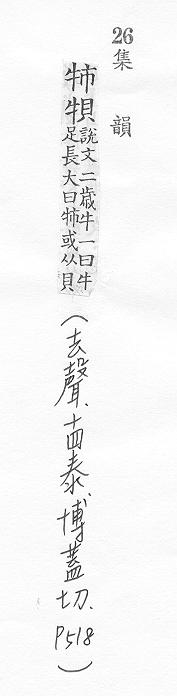 26
集韻
㸬𤙔說文二歲牛一曰牛
足長大曰㸬或从貝
（去聲．十四泰．博蓋切．P518）